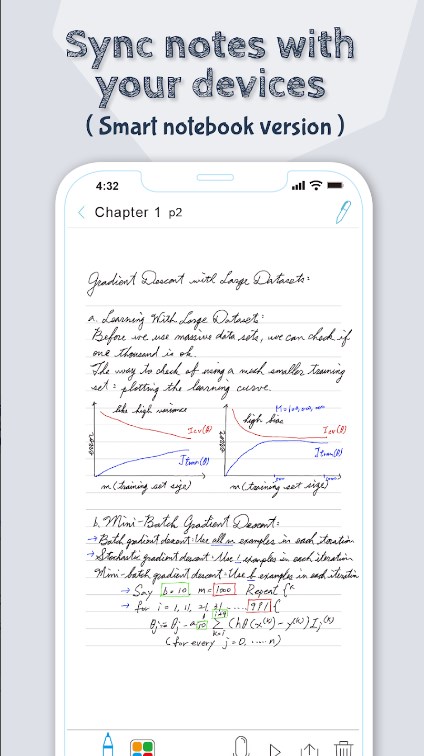 Sync notes with
your devices
( Smart notebook version )
4:32
Chapter 1 p2
Gradient Descent with Large Datasets:
a. Learning With Large Datasets:
Before we use massive data sets, we can check if
one thousand is ok.
The way to check of using a much smaller training
set: plotting the learning curve.
like high variance
error
Jcv(θ)
Jtrain(θ)
m (training set size)
high bias
error
Jcv(θ)
Jtrain(θ)
m (training set size)
b. Mini-Batch Gradient Descent:
→ Batch gradient descent: Use all m examples in each iteration
→ Stochastic gradient descent: Use 1 examples in each iteration
Mini-batch gradient descent: Use b examples in each iteration
→ Say b = 10, m = 1000 Repeat {
→ for i = 1, 11, 21, 31, ..... 991 {
(for every j=0, ..... n)